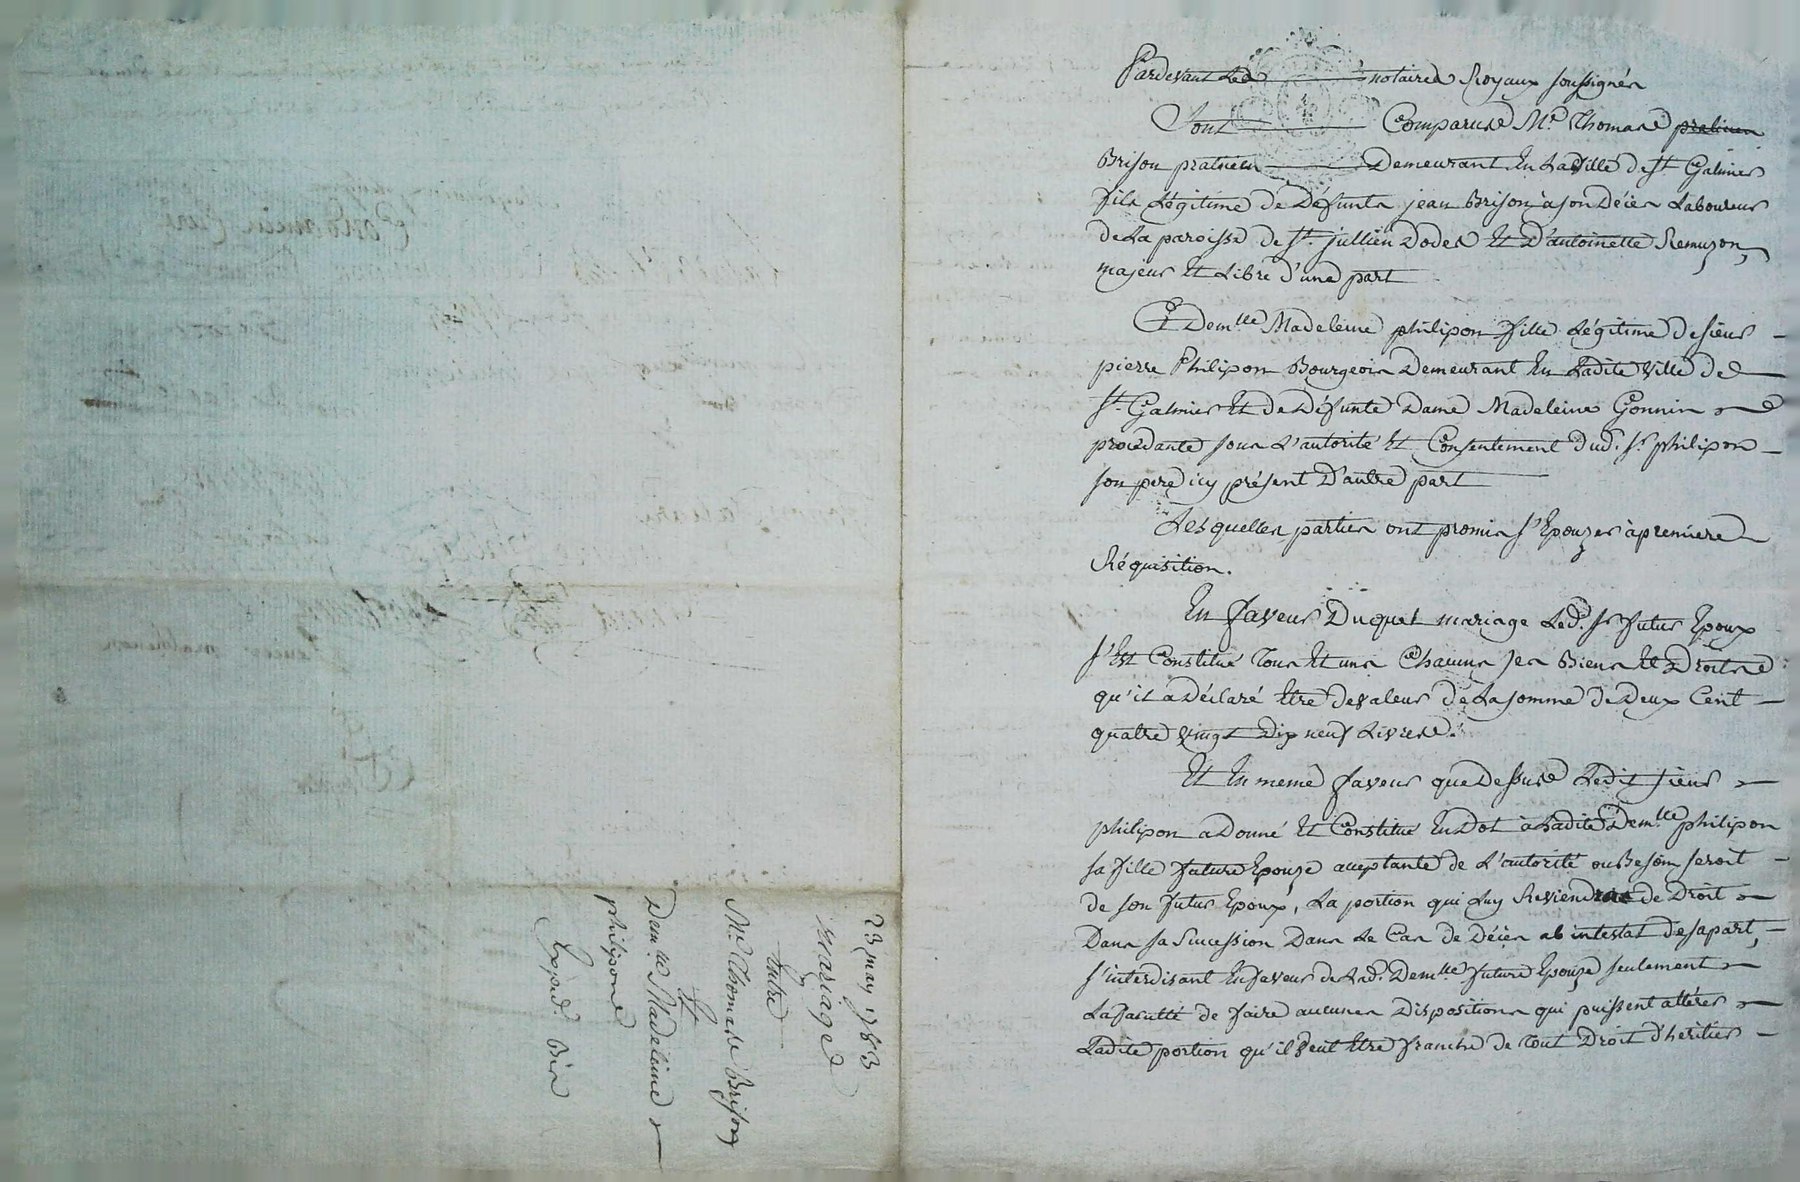 Pardevant Les notaires Royaux soussignés
Sont Comparus Me Thomas praticien
Brison praticien Demeurant En La Ville de St Galmier
fils Légitime de Défunts jean Brison à son Décès Laboureur
de La paroisse de St. jullien Dodes Et D'antoinette Remuzon,
majeur Et Libre d'une part
Et Demlle Madeleine philipon fille Légitime de sieur
pierre Philipon Bourgeois Demeurant En Ladite Ville de
St. Galmier Et de Défunte Dame Madeleine Gonnin
procédante sous L'autorité Et Consentement dud. Sr. philipon
son pere icy présent D'autre part
Lesquelles parties ont promis s'Epouzer à premiere
Réquisition.
En faveur Duquel mariage Led. Sr futur Epoux
s'Est Constitué Tous Et uns Chacuns ses Biens Et Droits
qu'il a Déclaré Etre de valeur de La somme de Deux Cent
quatre vingt Dix neuf Livres.
Et En meme faveur que Dessus Ledit sieur
philipon a Donné Et Constitué En Dot à Ladite Demlle philipon
sa fille future Epouze acceptante de L'autorité ou Besoin seroit
de son futur Epoux, La portion qui Luy Reviendra de Droit
Dans sa Succession Dans Le Cas de Décès ab intestat de sa part,
s'interdisant En faveur de Lad. Demlle future Epouze seulement
La faculté de faire aucunes Dispositions qui puissent altérer
Ladite portion qu'il Veut Etre franche de tout Droit d'heritier
23 may 1783
Mariage
Entre
Me. Thomas Brison
Et
Demlle Madeleine
philipon
Expéd. Bis